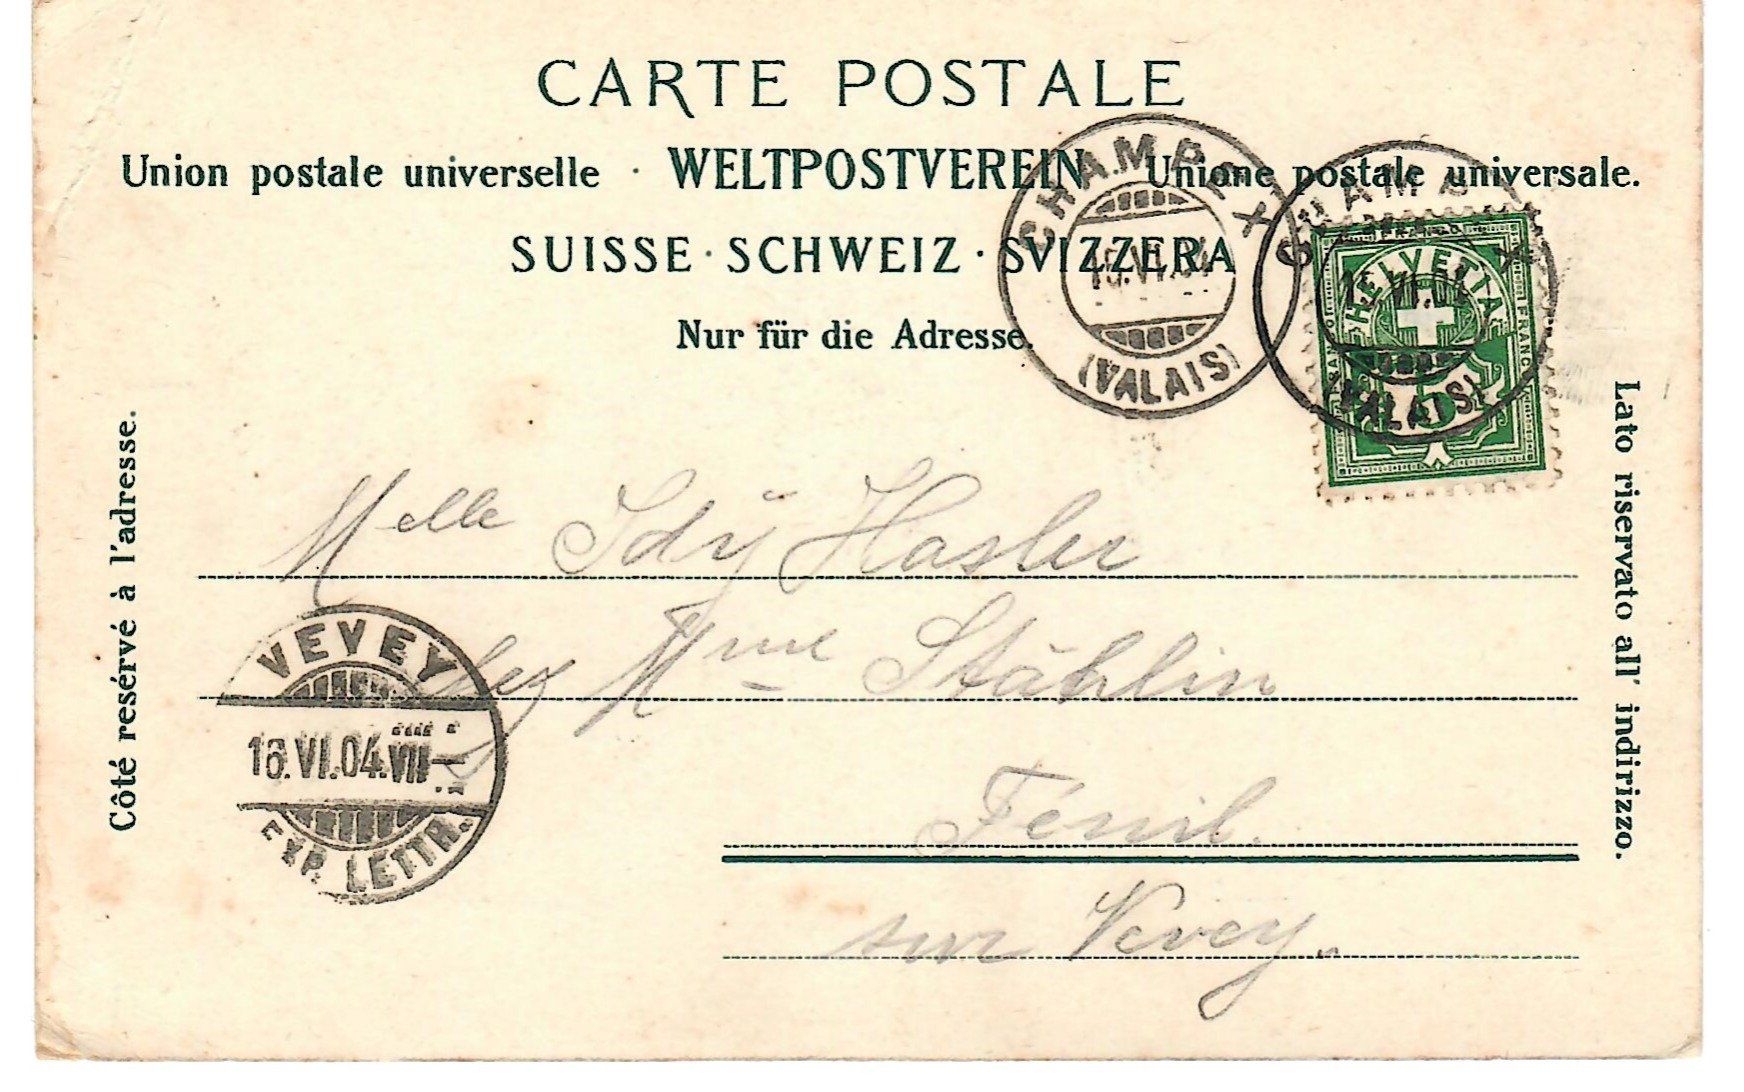 CARTE POSTALE
Union postale universelle · WELTPOSTVEREIN · Unione postale universale.
SUISSE · SCHWEIZ · SVIZZERA
Nur für die Adresse.
CHAMPEX
(VALAIS)
CHAMPEX
(VALAIS)
FRANCO
HELVETIA
FRANCO
5
Côté resérvé à l'adresse.
Lato riservato all' indirizzo.
Melle Idÿ Hasler
chez Mme Stählin
Fenil.
sur Vevey.
VEVEY
16.VI.04.VIII-
EXP. LETTR.